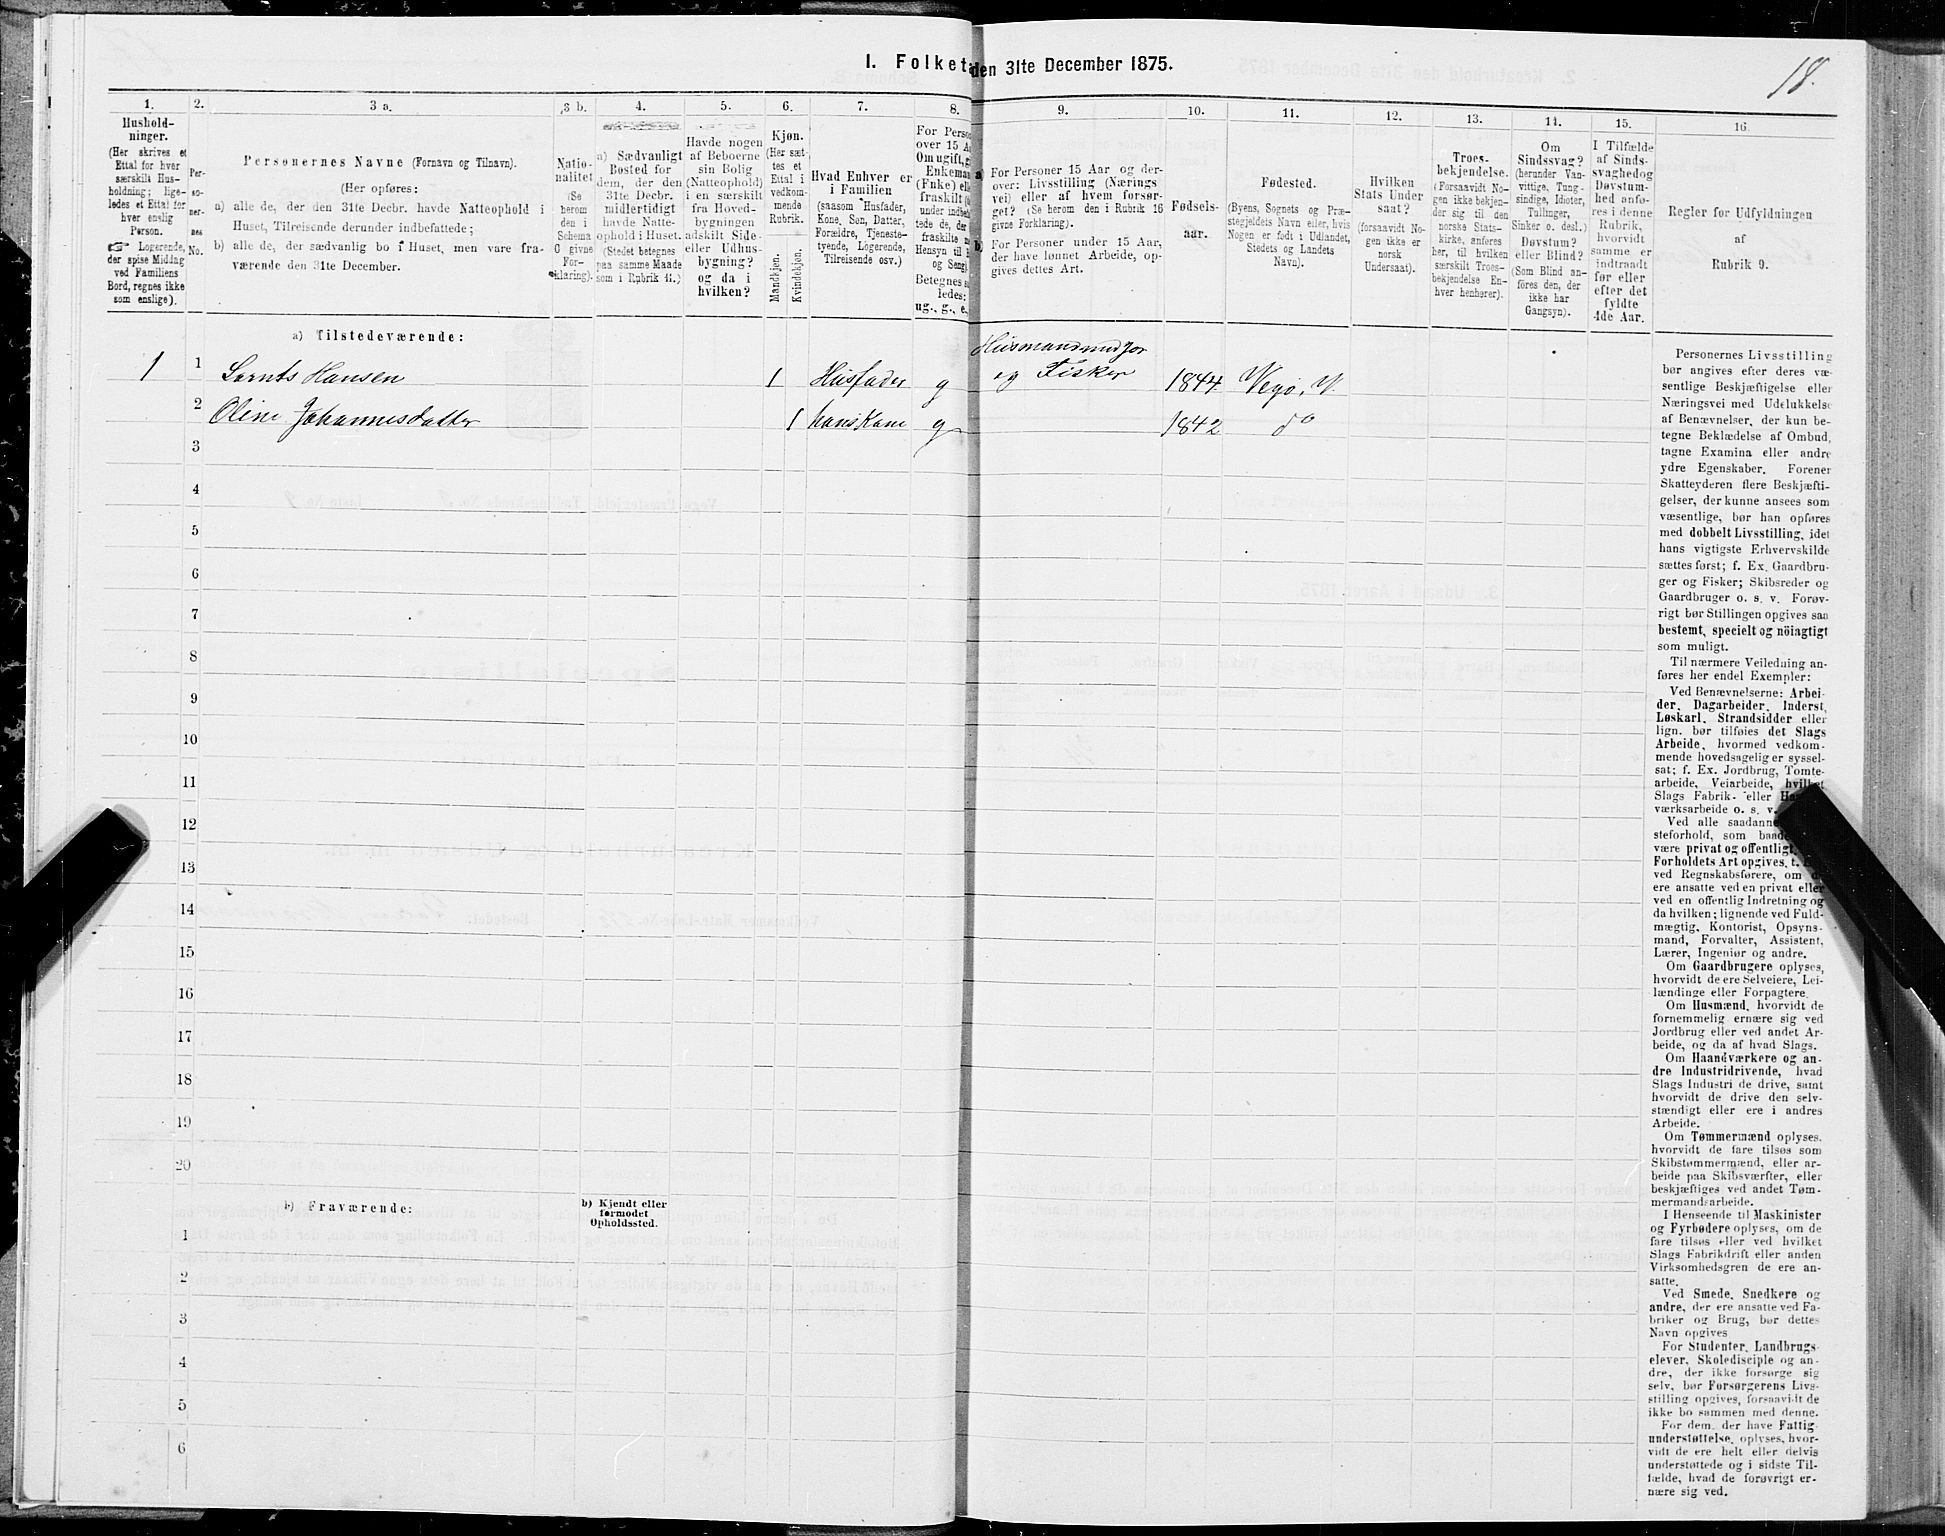 I. Folket den 31te December 1875.
18.
1.
Hushold-
ninger.
(Her skrives et
Ettal for hver
særskilt Hus-
holdning; lige-
ledes et Ettal for
hver enslig
Person.
☞ Logerende,
der spise Middag
ved Familiens
Bord, regnes ikke
som enslige).
2.
Per-
so-
ner-
nes
No.
3 a.
Personernes Navne (Fornavn og Tilnavn).
(Her opføres:
a) alle de, der den 31te Decbr. havde Natteophold i
Huset, Tilreisende derunder indbefattede;
b) alle de, der sædvanlig bo i Huset, men vare fra-
værende den 31te December.
3 b.
Natio-
nalitet
(Se
herom
den i
Schema
O givne
For-
klaring).
4.
a) Sædvanligt
Bosted for
dem, der den
31te Decbr.
midlertidigt
havde Natte-
ophold i Huset.
(Stedet betegnes
paa samme Maade
som i Rubrik 11.)
5.
Havde nogen
af Beboerne
sin Bolig
(Natteophold)
i en særskilt
fra Hoved-
bygningen
adskilt Side-
eller Udhus-
bygning?
og da i
hvilken?
6.
Kjøn.
(Her sæt-
tes et
Ettal i
vedkom-
mende
Rubrik.
Mandkjøn.
Kvindekjøn.
7.
Hvad Enhver er
i Familien
(saasom Husfader,
Kone, Søn, Datter,
Forældre, Tjeneste-
tyende, Logerende,
Tilreisende osv.)
8.
For Perso
over 15 A
Om ugift, g
Enkeman
(Enke) ell
fraskilt (
under indbe
tede de, der
fraskilte
Hensyn til
og Seng)
Betegnes
ledes:
ug., g., e.,
9.
a) For Personer 15 Aar og der-
over: Livsstilling (Nærings
vei) eller af hvem forsør-
get? (Se herom den i Rubrik 16
givne Forklaring).
b) For Personer under 15 Aar,
der have lønnet Arbeide, op-
gives dettes Art.
10.
Fødsels-
aar.
11.
Fødested.
(Byens, Sognets og Præ-
stegjeldets Navn eller, hvis
Nogen er født i Udlandet,
Stedets og Landets
Navn).
12.
Hvilken
Stats Under
saat?
(forsaavidt No-
gen ikke er
norsk
Undersaat).
13.
Troes-
bekjendelse.
(Forsaavidt No-
gen ikke bekjen-
der sig til den
norske Stats-
kirke, anføres
her, til hvilken
særskilt Troes-
bekjendelse En-
hver henhører).
14.
Om
Sindssvag?
(herunder Van-
vittige, Tung-
sindige, Idioter,
Tullinger,
Sinker o. desl.)
Døvstum?
eller Blind?
(Som Blind an-
føres den, der
ikke har
Gangsyn).
15.
I Tilfælde
af Sinds-
svaghed og
Døvstum-
hed anfø-
res i denne
Rubrik,
hvorvidt
samme er
indtraadt
før eller
efter det
fyldte
4de Aar.
16.
Regler for Udfyldningen
af
Rubrik 9.
a) Tilstedeværende:
Husmand
1 1 Hansen 1 Husfader g og Fisker 1844 Vegø, V.
2 Oline Johannesdatter 1 hans Kone g 1842 do
3
4
5
6
7
8
9
10
11
12
13
14
15
16
17
18
19
20
b) Fraværende:
b) Kjendt eller
formodet
Opholdssted.
1
2
3
4
5
6
Personernes Livsstilling
bør angives efter deres væ-
sentlige Beskjæftigelse eller
Næringsvei med Udelukkelse
af Benævnelser, der kun be-
tegne Beklædelse af Ombud,
tagne Examina eller andre
ydre Egenskaber. Forener
Skatteyderen flere Beskjæfti-
gelser, der kunne ansees som
væsentlige, bør han opføres
med dobbelt Livsstilling, idet
hans vigtigste Erhvervskilde
sættes først; f. Ex. Gaardbru-
ger og Fisker; Skibsreder og
Gaardbruger o. s. v. Forøv-
rigt bør Stillingen opgives saa
bestemt, specielt og nöiagtigt
som muligt.
Til nærmere Veiledning an-
føres her endel Exempler:
Ved Benævnelserne: Arbei-
der, Dagarbeider, Inderst,
Løskarl, Strandsidder eller
lign. bør tilføies det Slags
Arbeide, hvormed vedkom-
mende hovedsagelig er syssel-
sat; f. Ex. Jordbrug, Tomte-
arbeide, Veiarbeide, hvilket
Slags Fabrik- eller
værksarbeide o. s. v.
Ved alle saadanne
steforhold, som baade
være privat og offentligt,
Forholdets Art opgives, t.
ved Regnskabsførere, om
ere ansatte ved en privat eller
ved en offentlig Indretning og
da hvilken; lignende ved Fuld-
mægtig, Kontorist, Opsyns-
mand, Forvalter, Assistent,
Lærer, Ingeniør og andre.
Om Gaardbrugere oplyses,
hvorvidt de ere Selveiere, Lei-
lændinge eller Forpagtere.
Om Husmænd, hvorvidt de
fornemmelig ernære sig ved
Jordbrug eller ved andet Ar-
beide, og da af hvad Slags.
Om Haandværkere og an-
dre Industridrivende, hvad
Slags Industri de drive, samt
hvorvidt de drive den selv-
stændigt eller ere i andres
Arbeide.
Om Tømmermænd oplyses,
hvorvidt de fare tilsøs som
Skibstømmermænd, eller ar-
beide paa Skibsværfter, eller
beskjæftiges ved andet Tøm-
mermandsarbeide.
I Henseende til Maskinister
og Fyrbødere oplyses, om de
fare tilsøs eller ved hvilket
Slags Fabrikdrift eller anden
Virksomhedsgren de ere an-
satte.
Ved Smede, Snedkere og
andre, der ere ansatte ved Fa-
briker og Brug, bør dettes
Navn opgives
For Studenter, Landbrugs-
elever, Skoledisciple og an-
dre, der ikke forsørge sig
selv, bør Forsørgerens Livs-
stilling opgives, forsaavidt de
ikke bo sammen med denne.
For dem, der have Fattig-
understøttelse, oplyses, hvor-
vidt de ere helt eller delvis
understøttede og i sidste Til-
fælde, hvad de forøvrigt er-
nære sig ved.